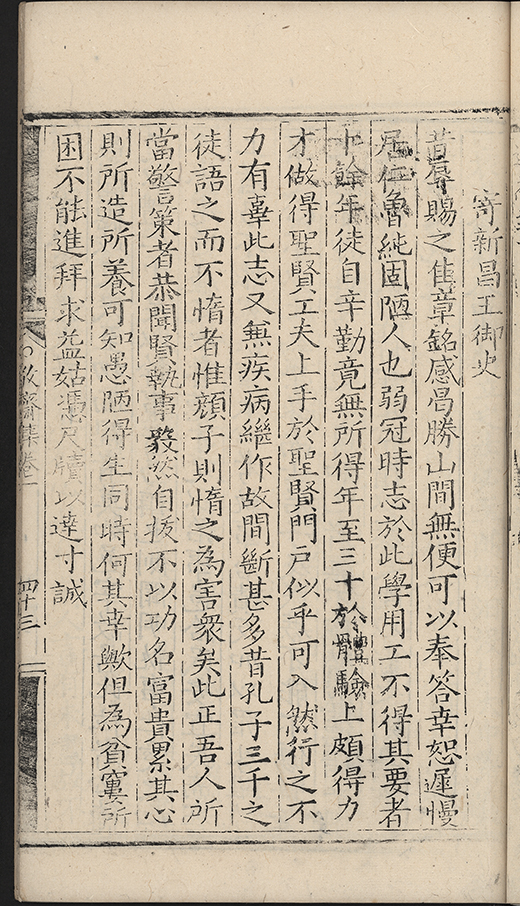 寄新昌王御史
昔辱賜之佳章銘感曷勝山間無便可以奉答幸恕遲慢
居仁魯純固陋人也弱冠時志於此學用工不得其要者
十餘年徒自辛勤竟無所得年至三十於體驗上頗得力
才做得聖賢工夫上手於聖賢門戶似乎可入然行之不
力有辜此志又無疾病繼作故間斷甚多昔孔子三千之
徒語之而不惰者惟顏子則惰之為害衆矣此正吾人所
當警策者恭聞賢執事毅然自拔不以功名富貴累其心
則所造所養可知愚陋得生同時何其幸歟但為貧窶所
困不能進拜求益姑憑尺牘以達寸誠
敬齋集卷一
四十三